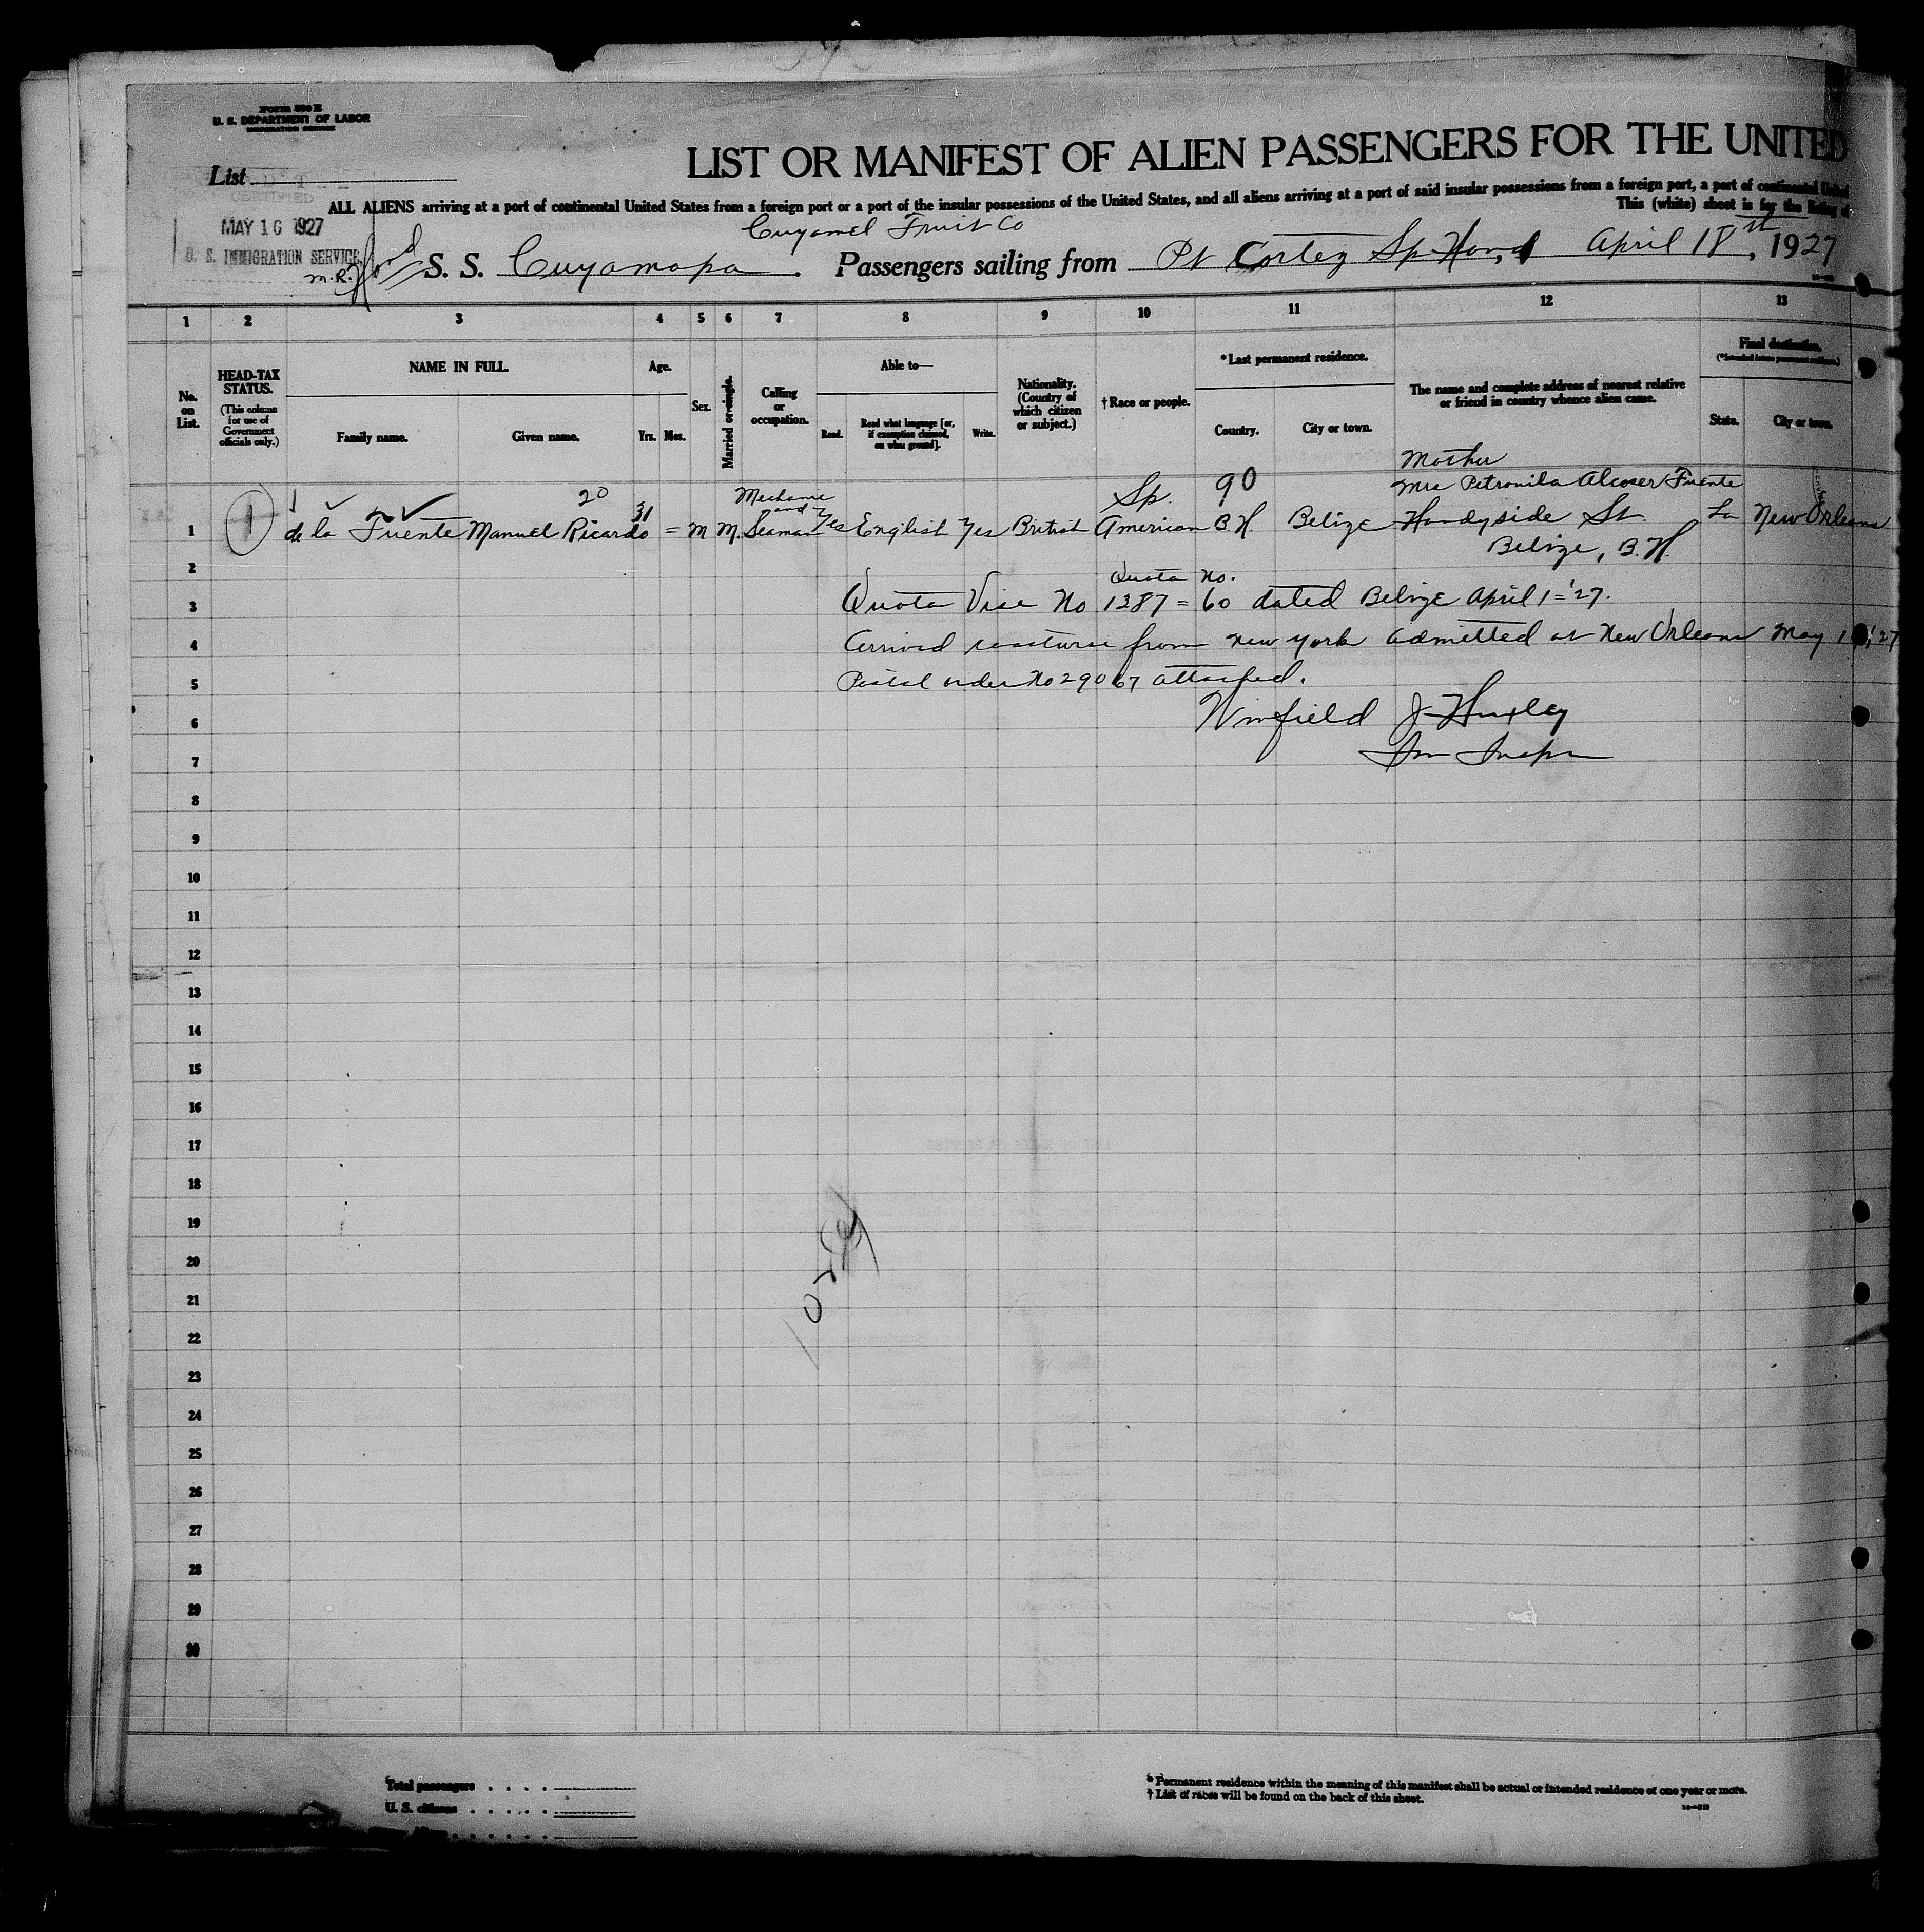 Form 500 E
U. S. DEPARTMENT OF LABOR
IMMIGRATION SERVICE
LIST OR MANIFEST OF ALIEN PASSENGERS FOR THE UNITED
List
CERTIFIED
ALL ALIENS arriving at a port of continental United States from a foreign port or a port of the insular possessions of the United States, and all aliens arriving at a port of said insular possessions from a foreign port, a port of continental United
This (white) sheet is for the listing of
MAY 16 1927
U. S. IMMIGRATION SERVICE
Cuyamel Fruit Co
S. S. Cuyamapa. Passengers sailing from Pt Cortez Sp Hond April 18th, 1927
1 2 3 4 5 6 7 8 9 10 11 12 13
No. on List.
HEAD-TAX STATUS.
(This column for use of Government officials only.)
NAME IN FULL.
Family name. Given name.
Age.
Yrs. Mos.
Sex.
Married or single.
Calling or occupation.
Able to—
Read. Read what language [or, if exemption claimed, on what ground]. Write.
Nationality. (Country of which citizen or subject.)
†Race or people.
*Last permanent residence.
Country. City or town.
The name and complete address of nearest relative or friend in country whence alien came.
Final destination.
(*Intended future permanent residence.)
State. City or town.
Mother
20 Mechanic and Sp. 90 Mrs Petronila Alcoser Fuente
1 1 de la Fuente Manuel Ricardo 31 = M M. Seaman Yes English Yes British American B.H. Belize Handyside St. La New Orleans
Belize, B.H.
2
Quota No.
3 Quota Vise No 1387 = 60 dated Belize April 1='27.
4 Arrived coastwise from New York admitted at New Orleans May
5 Postal order No 29067 attached.
6 Winfield J Huxley
7 Im Inspr
8
9
10
11
12
13
14
15
16
17
18
19
20
21
22
23
24
25
26
27
28
29
30
Total passengers
U. S. citizens
* Permanent residence within the meaning of this manifest shall be actual or intended residence of one year or more.
† List of races will be found on the back of this sheet.